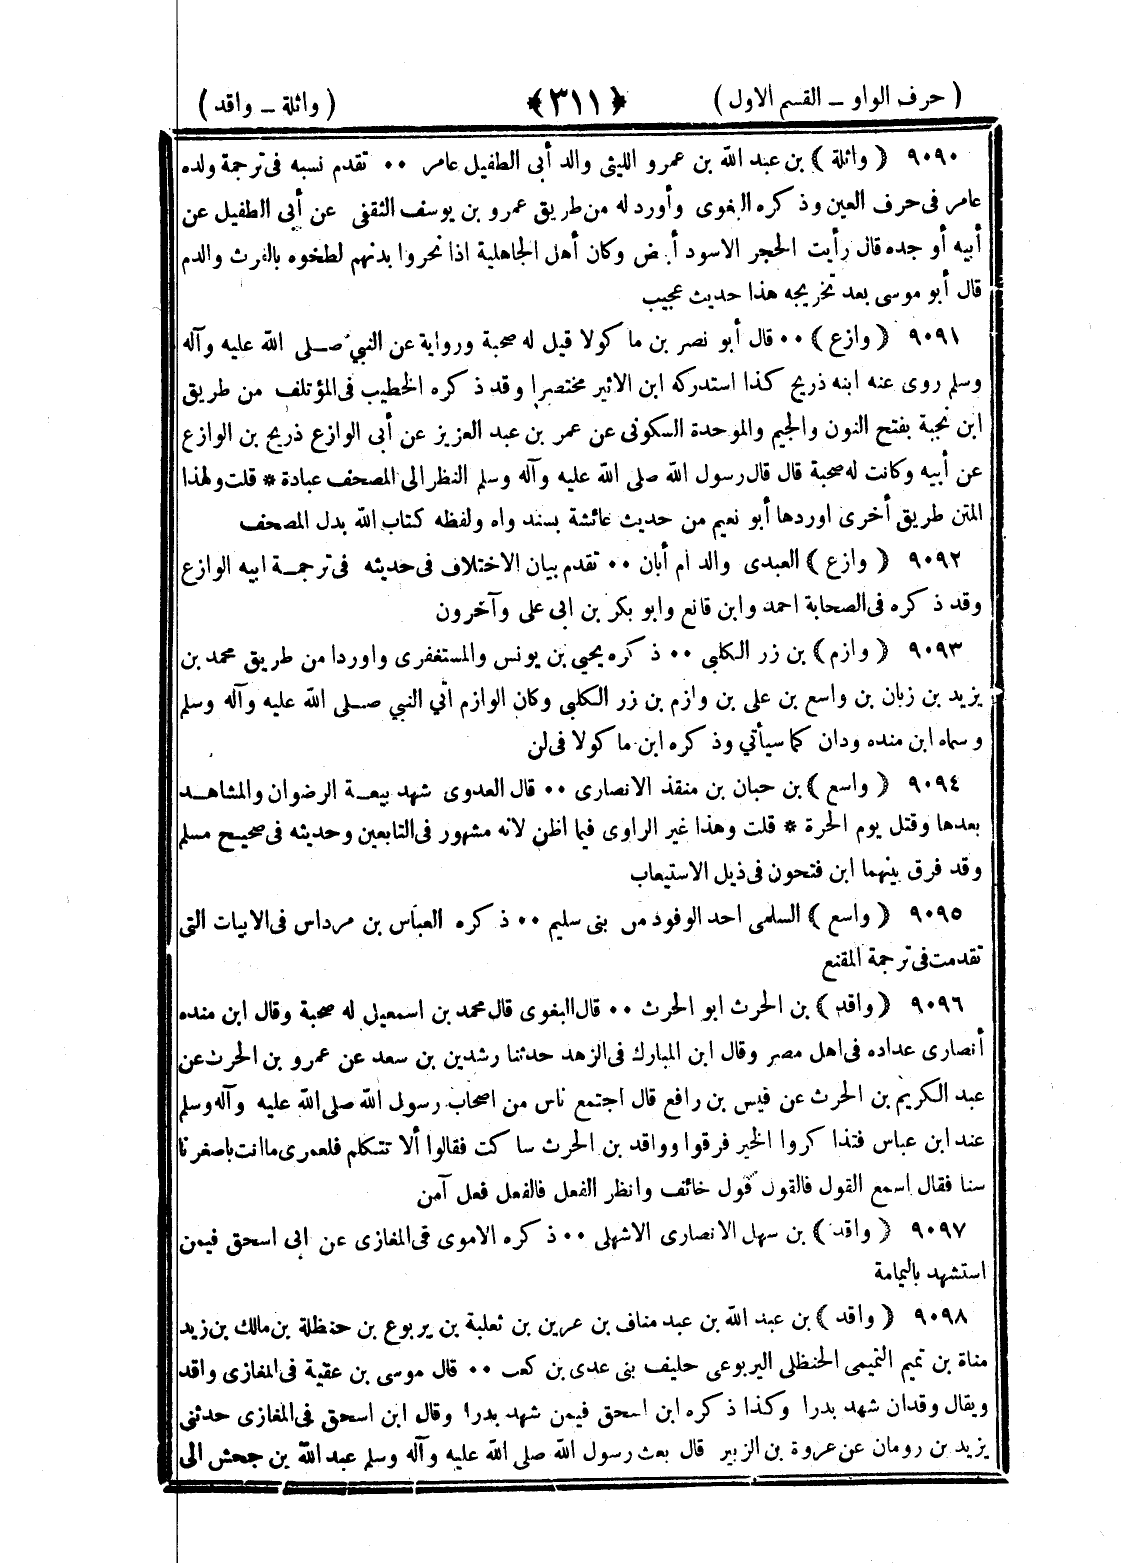 ( حرف الواو ـ القسم الاول ) ﴿ ٣١١ ﴾ ( واثلة ـ واقد )
٩٠٩٠ ( واثلة ) بن عبد الله بن عمرو الليثى والد أبى الطفيل عامر ۰۰ تقدم نسبه فى ترجمة ولده
عامر فى حرف العين وذكره البغوى وأورد له من طريق عمرو بن يوسف الثقفى عن أبى الطفيل عن
أبيه أو جده قال رأيت الحجر الاسود أبيض وكان أهل الجاهلية اذا نحروا بدنهم لطخوه بالفرث والدم
قال أبو موسى بعد تخريجه هذا حديث عجيب
٩٠٩١ ( وازع ) ۰۰ قال أبو نصر بن ماكولا قيل له صحبة ورواية عن النبي صلى الله عليه وآله
وسلم روى عنه ابنه ذريح كذا استدركه ابن الاثير مختصرا وقد ذكره الخطيب فى المؤتلف من طريق
ابن نجبة بفتح النون والجيم والموحدة السكونى عن عمر بن عبد العزيز عن أبى الوازع ذريح بن الوازع
عن أبيه وكانت له صحبة قال قال رسول الله صلى الله عليه وآله وسلم النظر الى المصحف عبادة * قلت ولهذا
المتن طريق أخرى اوردها أبو نعيم من حديث عائشة بسند واه ولفظه كتاب الله بدل المصحف
٩٠٩٢ ( وازع ) العبدى والد ام أبان ۰۰ تقدم بيان الاختلاف فى حديثه فى ترجمة ابيه الوازع
وقد ذكره فى الصحابة احمد وابن قانع وابو بكر بن ابى على وآخرون
٩٠٩٣ ( وازم ) بن زر الكلبى ۰۰ ذكره يحيى بن يونس والمستغفرى واوردا من طريق محمد بن
يزيد بن زبان بن واسع بن على بن وازم بن زر الكلبى وكان الوازم أتي النبي صلى الله عليه وآله وسلم
وسماه ابن منده ودان كما سيأتي وذكره ابن ماكولا فى لن
٩٠٩٤ ( واسع ) بن حبان بن منقذ الانصارى ۰۰ قال العدوى شهد بيعة الرضوان والمشاهد
بعدها وقتل يوم الحرة * قلت وهذا غير الراوى فيما اظن لانه مشهور فى التابعين وحديثه فى صحيح مسلم
وقد فرق بينهما ابن فتحون فى ذيل الاستيعاب
٩٠٩٥ ( واسع ) السلمى احد الوفود من بنى سليم ۰۰ ذكره العباس بن مرداس فى الابيات التى
تقدمت فى ترجمة المقنع
٩٠٩٦ ( واقد ) بن الحرث ابو الحرث ۰۰ قال البغوى قال محمد بن اسمعيل له صحبة وقال ابن منده
أنصارى عداده فى اهل مصر وقال ابن المبارك فى الزهد حدثنا رشدين بن سعد عن عمرو بن الحرث عن
عبد الكريم بن الحرث عن قيس بن رافع قال اجتمع ناس من اصحاب رسول الله صلى الله عليه وآله وسلم
عند ابن عباس فتذاكروا الخير فرقوا وواقد بن الحرث ساكت فقالوا ألا تتكلم فلعمرى ما انت باصغرنا
سنا فقال اسمع القول فالقول قول خائف وانظر الفعل فالفعل فعل آمن
٩٠٩٧ ( واقد ) بن سهل الانصارى الاشهلى ۰۰ ذكره الاموى فى المغازى عن ابى اسحق فيمن
استشهد باليمامة
٩٠٩٨ ( واقد ) بن عبد الله بن عبد مناف بن عرين بن ثعلبة بن يربوع بن حنظلة بن مالك بن زيد
مناة بن تميم التميمى الحنظلى اليربوعى حليف بنى عدى بن كعب ۰۰ قال موسى بن عقبة فى المغازى واقد
ويقال وقدان شهد بدرا وكذا ذكره ابن اسحق فيمن شهد بدرا وقال ابن اسحق فى المغازى حدثنى
يزيد بن رومان عن عروة بن الزبير قال بعث رسول الله صلى الله عليه وآله وسلم عبد الله بن جحش الى